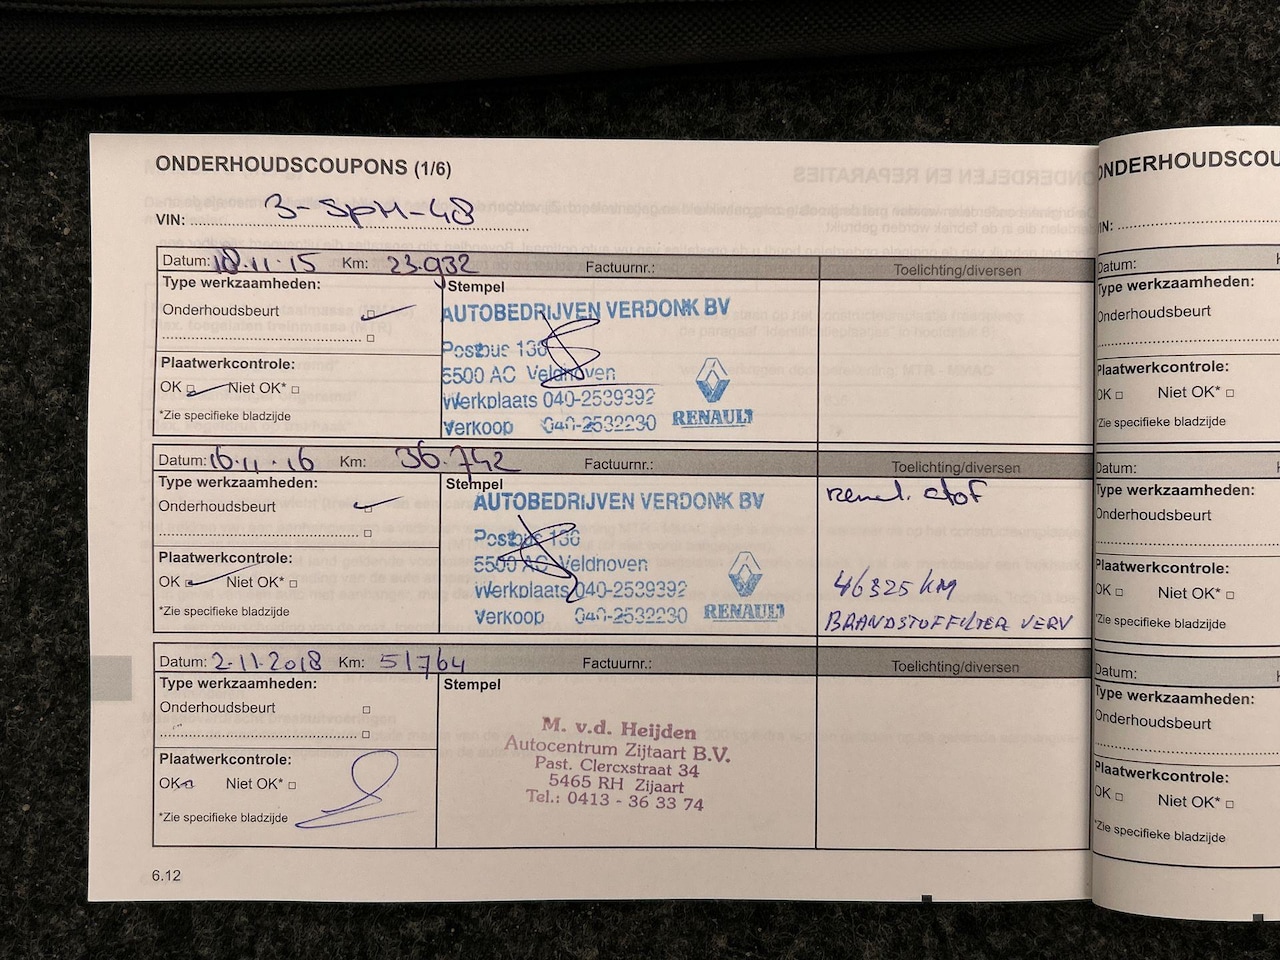 ONDERHOUDSCOUPONS (1/6)
VIN: 3-SPH-48
Datum: 18.11.15 Km: 23.932 Factuurnr.: Toelichting/diversen
Type werkzaamheden: Stempel
Onderhoudsbeurt
AUTOBEDRIJVEN VERDONK BV
Postbus 136
5500 AC Veldhoven
Werkplaats 040-2539392
Verkoop 040-2532230
RENAULT
Plaatwerkcontrole:
OK Niet OK*
*Zie specifieke bladzijde
Datum: 16.11.16 Km: 36.742 Factuurnr.: Toelichting/diversen
Type werkzaamheden: Stempel
Onderhoudsbeurt
AUTOBEDRIJVEN VERDONK BV
Postbus 136
5500 AC Veldhoven
Werkplaats 040-2539392
Verkoop 040-2532230
RENAULT
46325 KM
BRANDSTOFFILTER VERV
Plaatwerkcontrole:
OK Niet OK*
*Zie specifieke bladzijde
Datum: 2.11.2018 Km: 51764 Factuurnr.: Toelichting/diversen
Type werkzaamheden: Stempel
Onderhoudsbeurt
M. v.d. Heijden
Autocentrum Zijtaart B.V.
Past. Clercxstraat 34
5465 RH Zijaart
Tel.: 0413 - 36 33 74
Plaatwerkcontrole:
OK Niet OK*
*Zie specifieke bladzijde
6.12
ONDERHOUDSCOU
VIN:
Datum:
Type werkzaamheden:
Onderhoudsbeurt
Plaatwerkcontrole:
OK Niet OK*
*Zie specifieke bladzijde
Datum:
Type werkzaamheden:
Onderhoudsbeurt
Plaatwerkcontrole:
OK Niet OK*
*Zie specifieke bladzijde
Datum:
Type werkzaamheden:
Onderhoudsbeurt
Plaatwerkcontrole:
OK Niet OK*
*Zie specifieke bladzijde